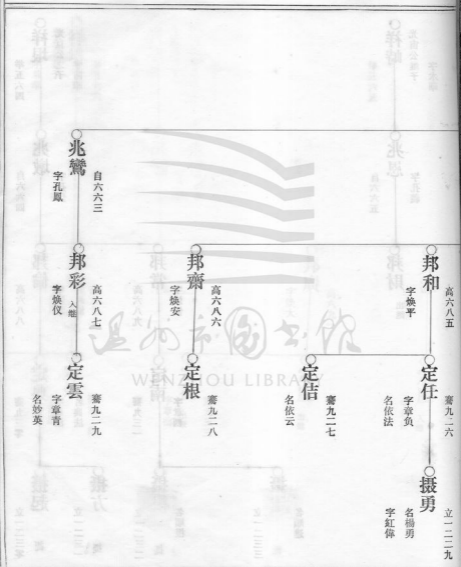 兆鸞
自六六三
字孔鳳
邦和
高六八五
字煥平
邦齋
高六八六
字煥安
邦彩
高六八七
入繼
字煥仪
定任
騫九二六
字章负
名依法
定佶
騫九二七
名依云
定根
騫九二八
定雲
騫九二九
字章青
名妙英
摄勇
立一二二九
名楊勇
字紅偉
WENZHOU LIBRARY